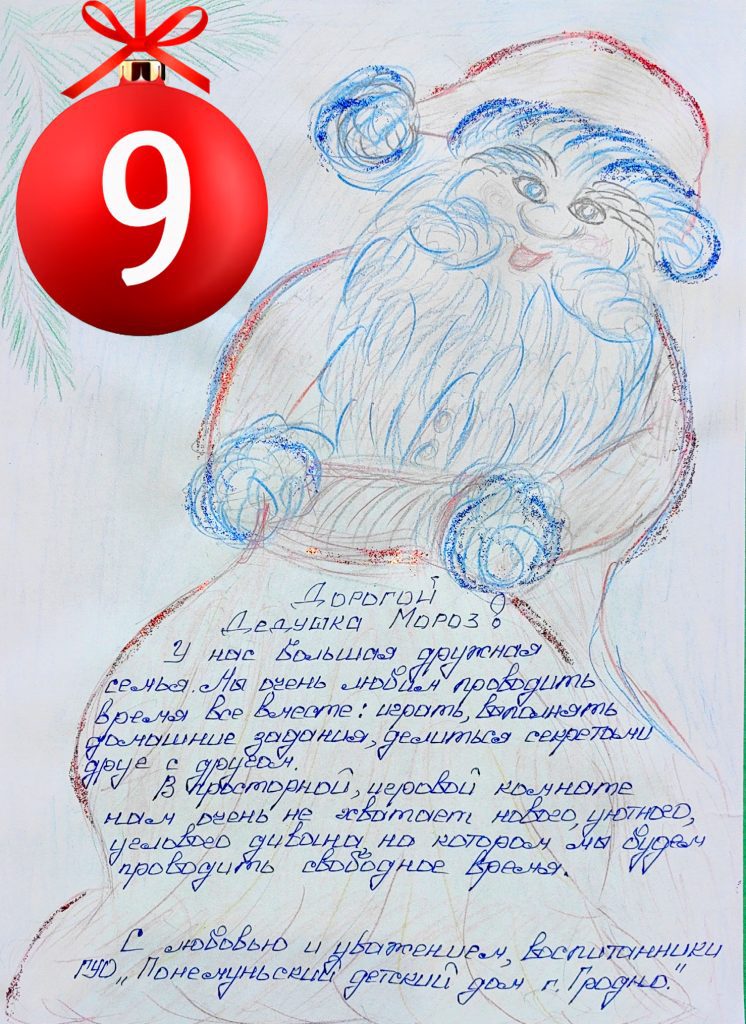 9
Дорогой
Дедушка Мороз!
У нас большая дружная
семья. Мы очень любим проводить
время все вместе: играть, выполнять
домашние задания, делиться секретами
друг с другом.
В просторной, игровой комнате
нам очень не хватает нового, уютного,
углового дивана, на котором мы будем
проводить свободное время.
С любовью и уважением, воспитанники
ГУО „Понемуньский детский дом г. Гродно."